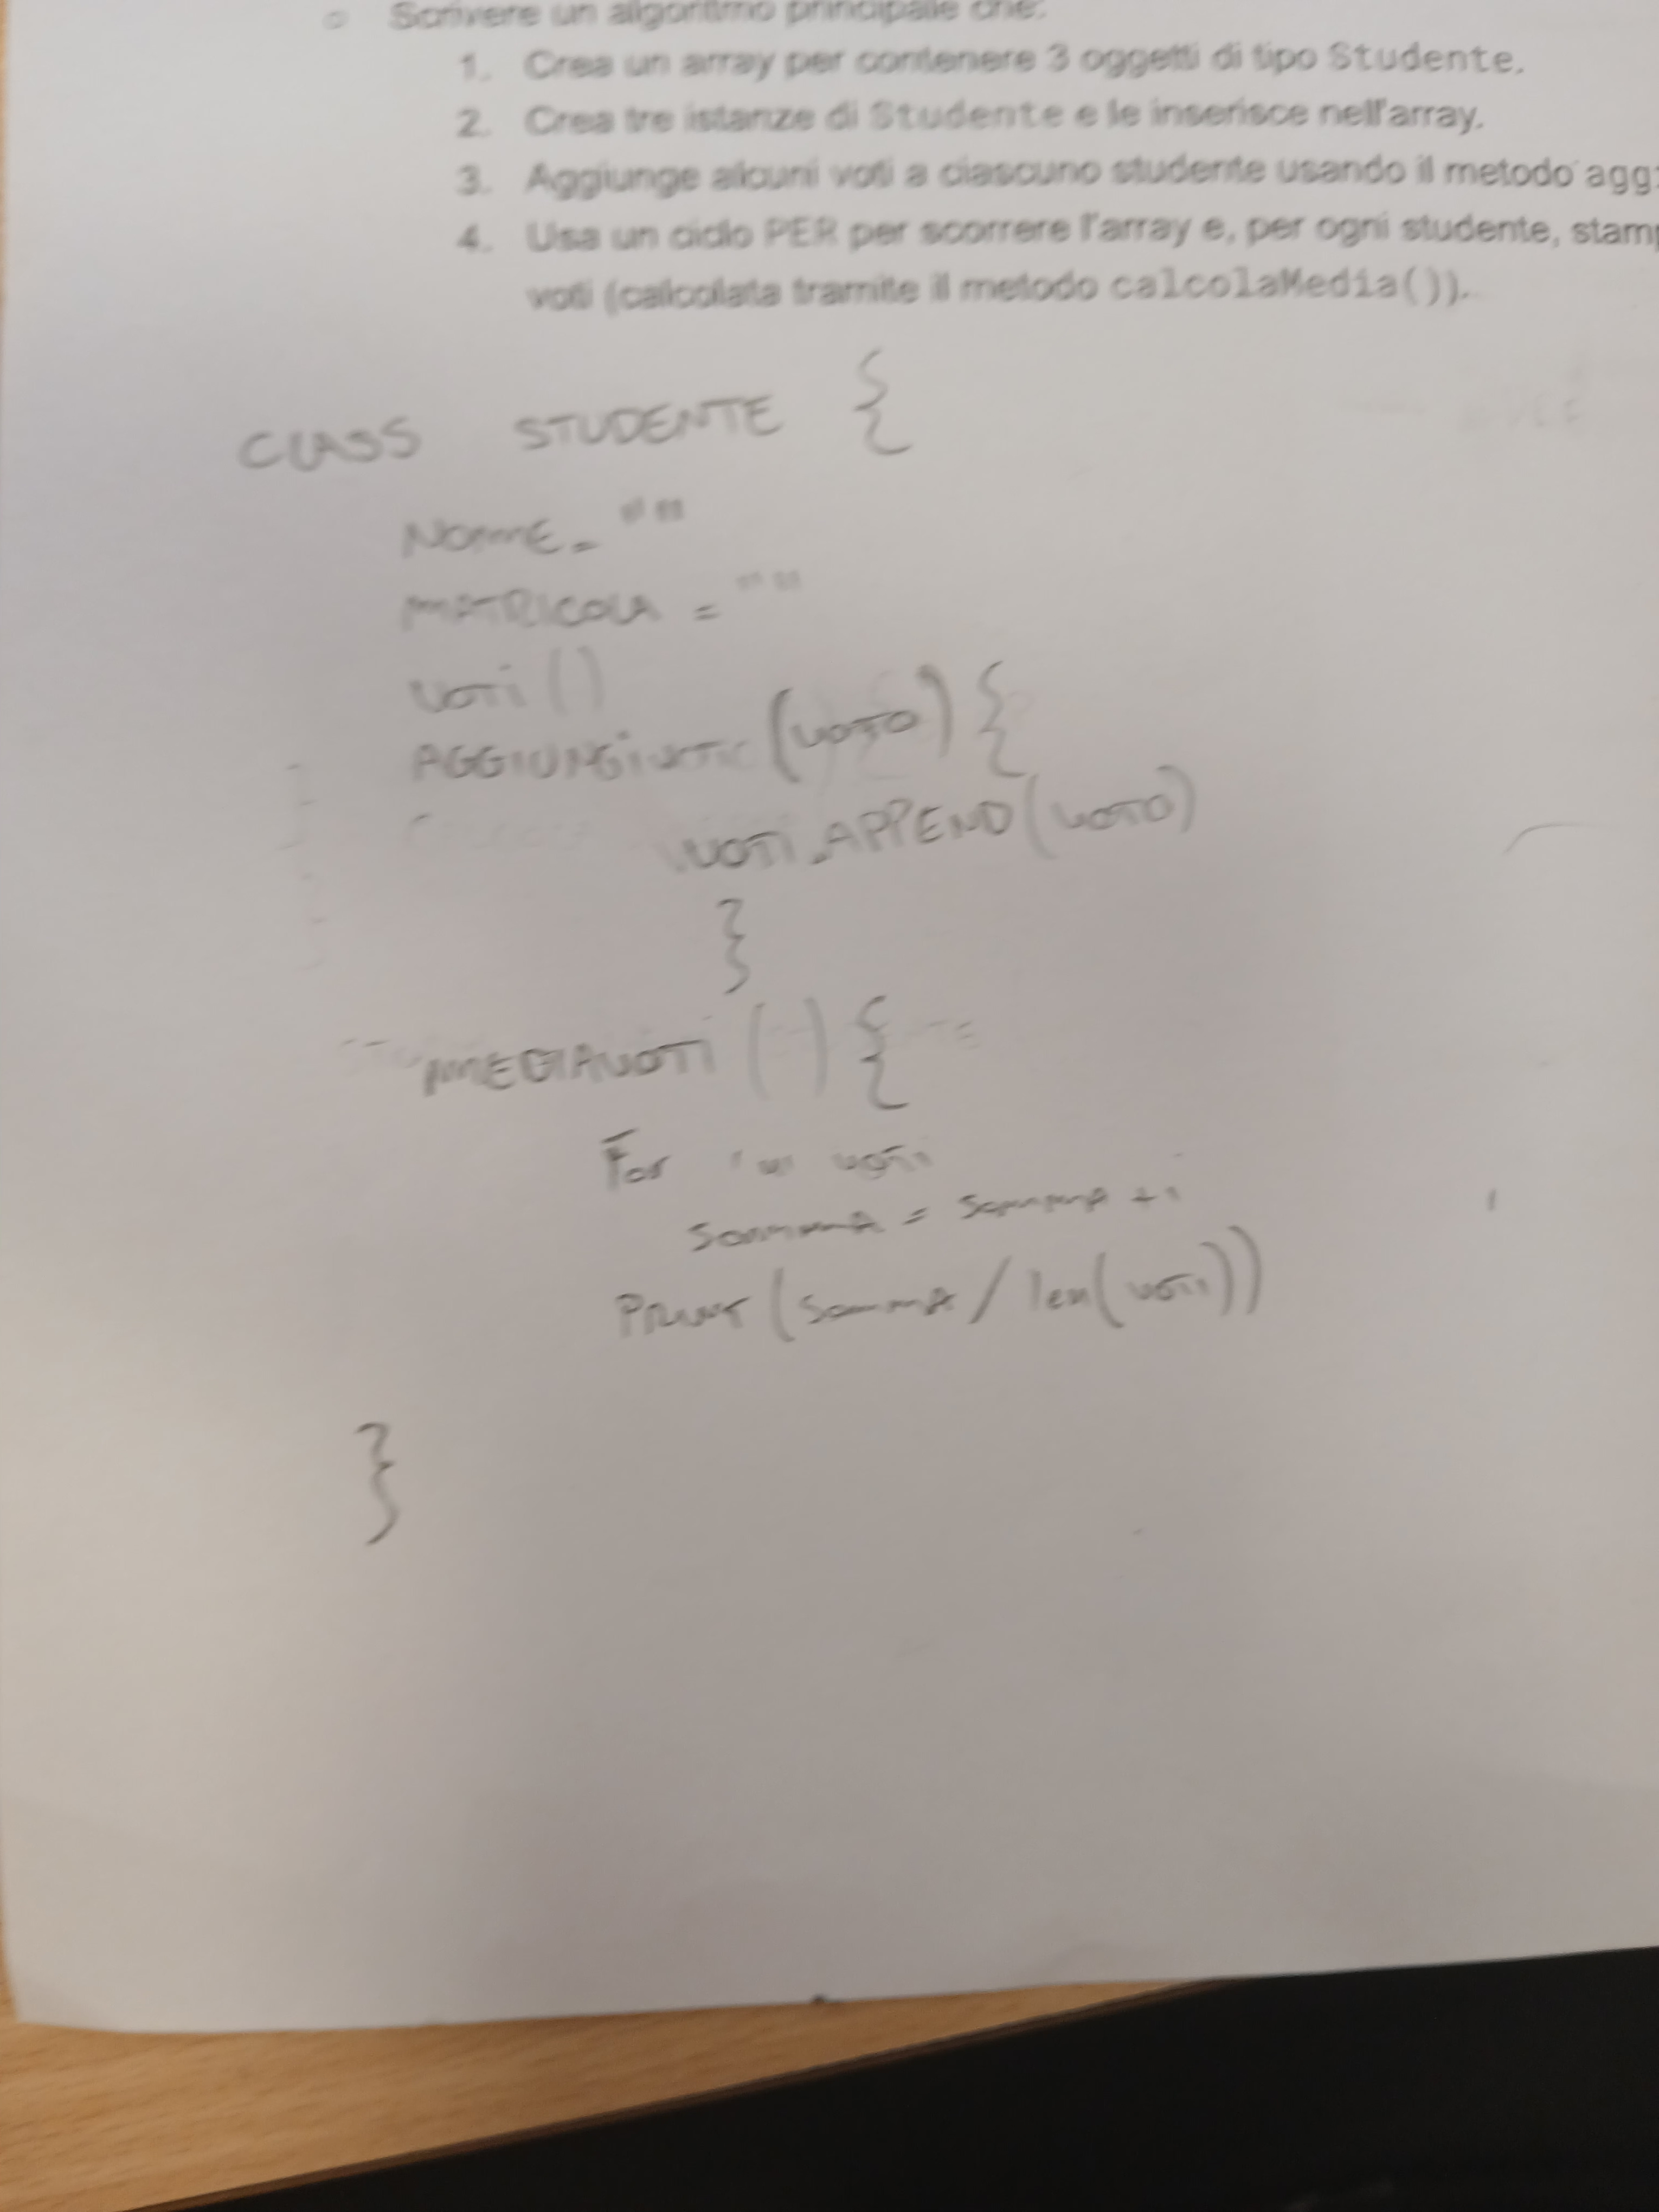 ○ Scrivere un algoritmo principale che:
1. Crea un array per contenere 3 oggetti di tipo Studente.
2. Crea tre istanze di Studente e le inserisce nell'array.
3. Aggiunge alcuni voti a ciascuno studente usando il metodo agg
4. Usa un ciclo PER per scorrere l'array e, per ogni studente, stam
voti (calcolata tramite il metodo calcolaMedia()).
CLASS STUDENTE {
NOME = ""
MATRICOLA = ""
VOTI ()
(VOTO) {
VOTI.APPEND(VOTO)
}
MEDIAVOTI () {
For i in voti
SOMMA = SOMMA + i
PRINT (SOMMA / len(voti))
}